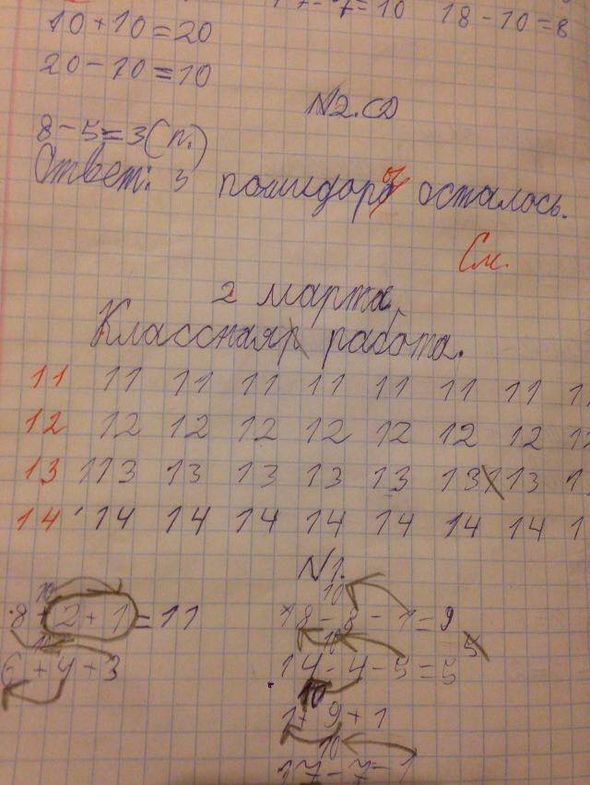 10+10=20 18-10=8
20-10=10
N2.
8-5=3(п.)
Ответ: 3 помидора осталось.
См.
2 марта.
Классная работа.
11 11 11 11 11 11 11 11
12 12 12 12 12 12 12 12
13 113 13 13 13 13 13 13
14 14 14 14 14 14 14 14
N1.
10 10
8+2+1=11 18-8-1=9
10 10 5
6+4+3 14-4-5=5
10
1+9+1
10
17-7-1